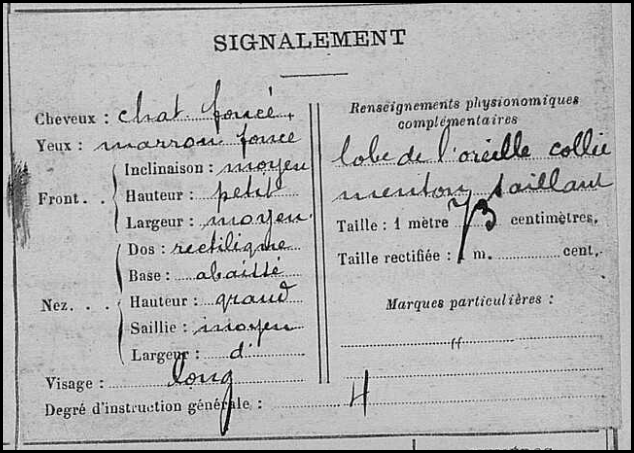 SIGNALEMENT
Cheveux : chat foncé
Yeux : marron foncé
Front. . Inclinaison : moyen
Hauteur : petit
Largeur : moyen
Nez. . . Dos : rectiligne
Base : abaissé
Hauteur : grand
Saillie : moyen
Largeur : d°
Visage : long
Degré d'instruction générale :
Renseignements physionomiques
complémentaires
lobe de l'oreille collée
menton saillant
Taille : 1 mètre 73 centimètres.
Taille rectifiée : 1 m. cent.
Marques particulières :
"